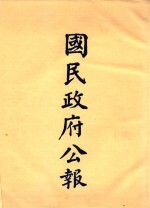 國民政府公報